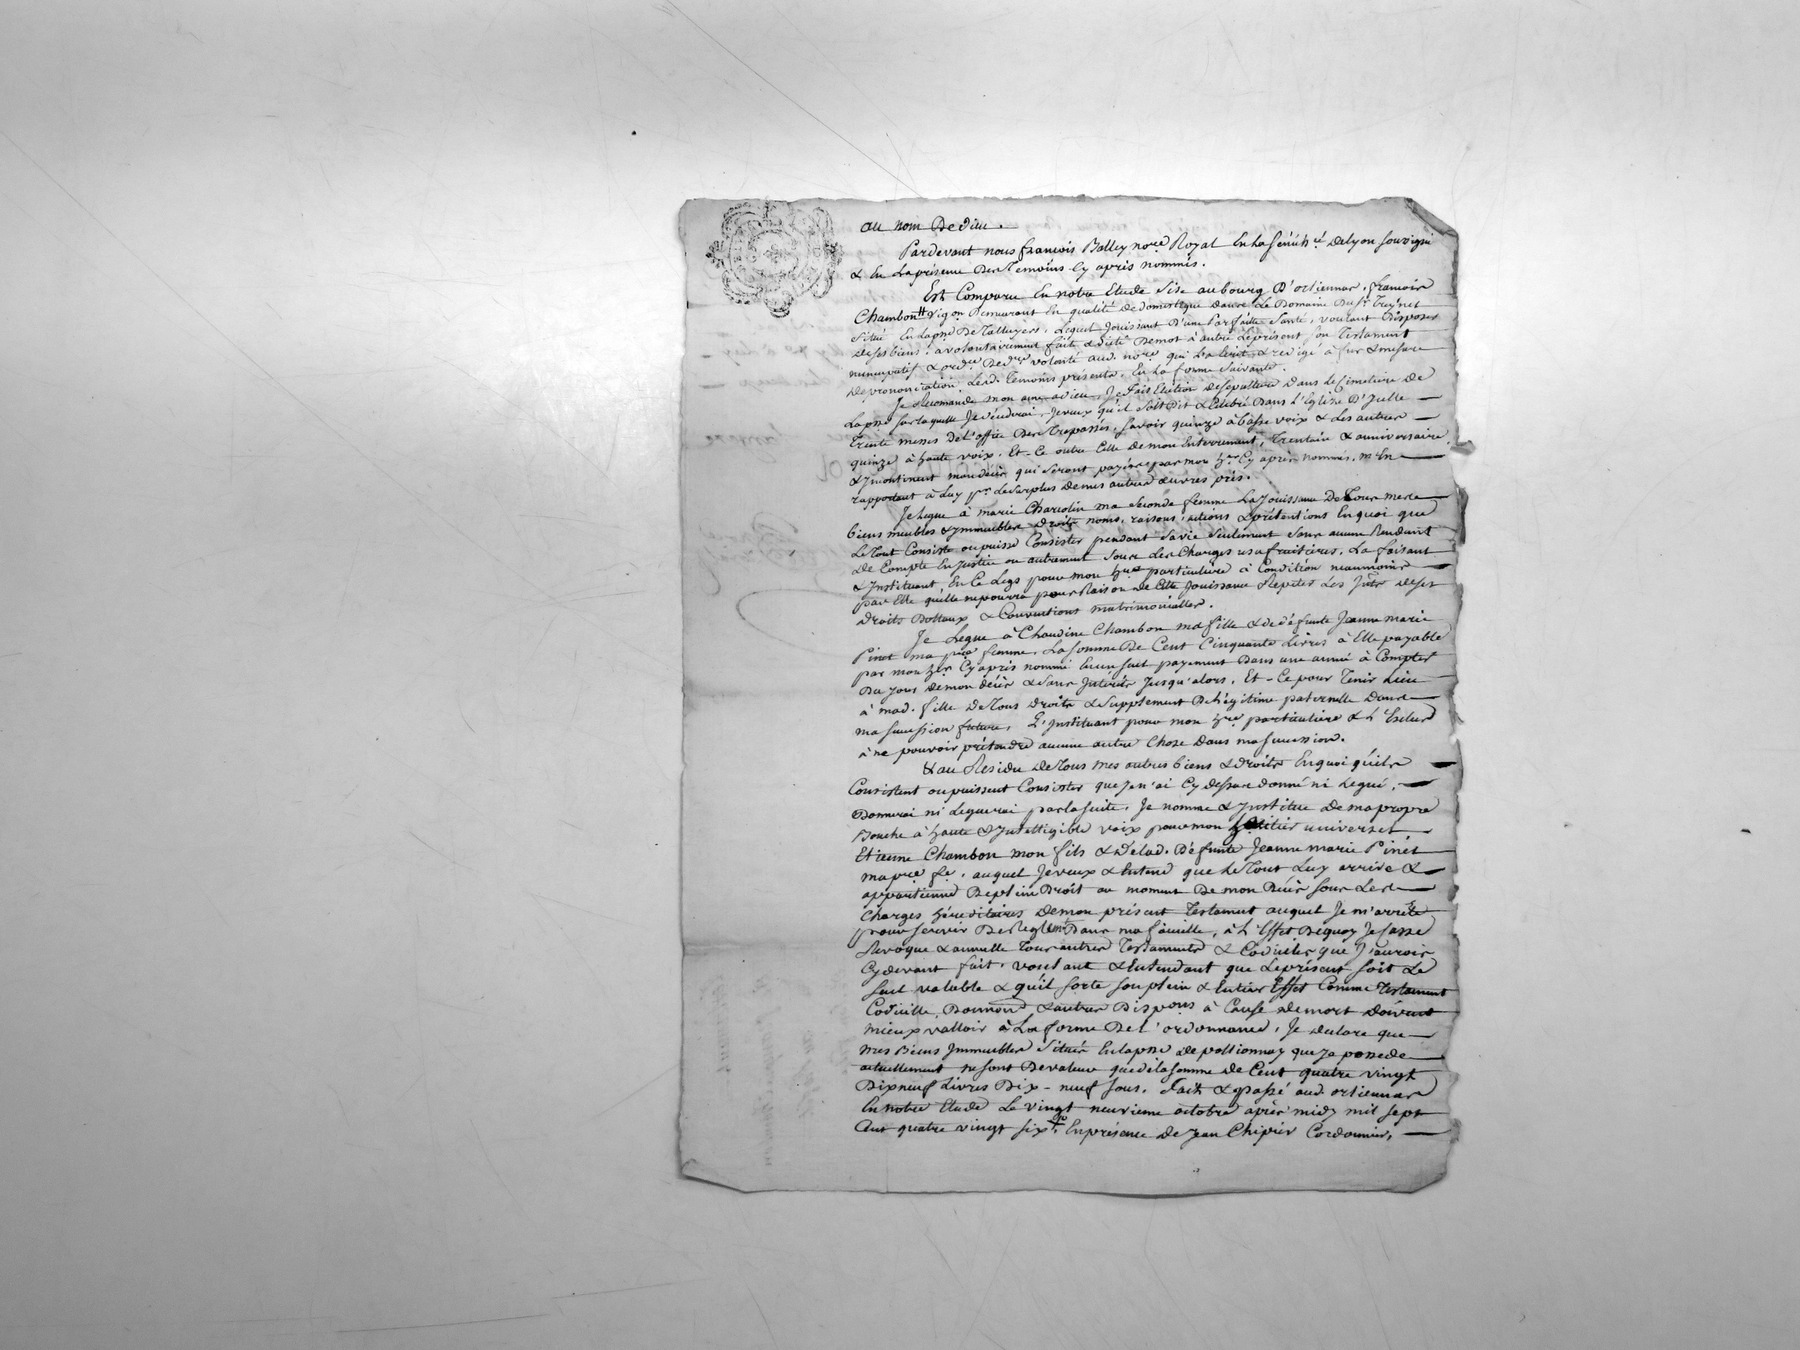 au nom De dieu.
Pardevant nous françois Balley no.re Royal En La Sénéch.é de Lyon Soussigné
& En La présence Des Temoins Cy après nommés.
Est Comparu En notre Etude Size au bourg D'orliennas, françois
Chambon # Vigon Demeurant En qualité de Domestique dans Le Domaine Du S.r Treynet
Situé En La p.sse De Talluyers, Lequel Jouissant D'une Parfaitte Santé, voulant Disposer
de ses biens, a volontairement fait & dicté De mot à autre Le présent son Testament
nuncupatif & ord.ce De d.re volonté aud. no.re qui L'a Ecrit & redigé à fur & mesure
de prononciation, Lesd. Temoins présents, En La forme Suivante.
Je Recomande mon ame a dieu, Je fais Election de sepulture Dans Le Cimetiere De
La p.sse sur Laquelle Je décedrai, Je veux qu'il soit Dit & Célébré Dans L'Eglise D'
Trente messes De L'office Des Trepassés, Savoir quinze à basse voix & Les autres
quinze à haute voix, Et Ce outre Celle de mon Enterrement, Trentain & anniversaire
& Incontinent mon décès qui seront payées par mon h.er Cy après nommé, m'En
rapportant à Luy p.r Le Surplus de mes autres œuvres pies.
Je Legue à marie Charvolin ma Seconde femme La Jouissance De Tous mes
biens meubles & Immeubles Droits noms, raisons, actions & prétentions En quoi que
Le Tout Consiste ou puisse Consister pendant Sa vie Seulement Sans aucun Rendant
de Compte En Justice ou autrement Sous Les Charges usufruitieres, La faisant
& Instituant En Ce Legs pour mon h.ere particuliere à Condition néanmoins
par Elle qu'elle ne pourra pour Raison de Cette Jouissance Repeter Les Jnts de ses
droits Dottaux & Conventions matrimonialles.
Je Legue à Claudine Chambon ma fille & de défunte Jeanne marie
Pinet ma p.re femme, La Somme De Cent Cinquante Livres à Elle payable
par mon h.er Cy après nommé En un seul payement Dans une année à Compter
Du Jour de mon décès & Sans Intérêts Jusqu'alors, Et - Ce pour Tenir Lieu
à mad. fille De Tous Droits & Supplement De Légitime paternelle Dans
ma Succession future, L'Instituant pour mon h.ere particuliere & L'Exclus
à ne pouvoir prétendre aucune autre Chose Dans ma Succession.
Et au Residu de Tous mes autres biens & droits En quoi qu'ils
Consistent ou puissent Consister que Je n'ai Cy dessus donné ni Legué,
Donnerai ni Leguerai par La suite, Je nomme & Institue De ma propre
Bouche à haute & Intelligible voix pour mon héritier universel
Etienne Chambon mon fils & de Lad. Défunte Jeanne marie Pinet
ma p.re fe, auquel Je veux & Entend que Le Tout Luy arrive &
appartienne De plein Droit au moment De mon Décès Sous Les
Charges héréditaires de mon présent Testament auquel Je m'arrête
pour Servir De Reglem.t Dans ma famille, à L'Effet De quoy Je Casse
Revoque & annulle Tous autres Testaments & Codicilles que J'aurois
Cy devant fait, voulant & Entendant que Le présent Soit Le
Seul valable & qu'il sorte son plein & Entier Effet Comme Testament
Codicille, Donnation & autres Dispons à Cause de mort devant
mieux valloir à La forme De L'ordonnance, Je déclare que
mes Biens Immeubles Situés En La p.sse de pollionnay que Je possede
actuellement ne sont De valeur que de La somme de Cent quatre vingt
Dix neuf Livres Dix - neuf sous. fait & passé aud. orliennas
En notre Etude Le vingt neuvieme octobre après midy mil sept
Cent quatre vingt six, En présence de Jean Chipier Cordonnier,